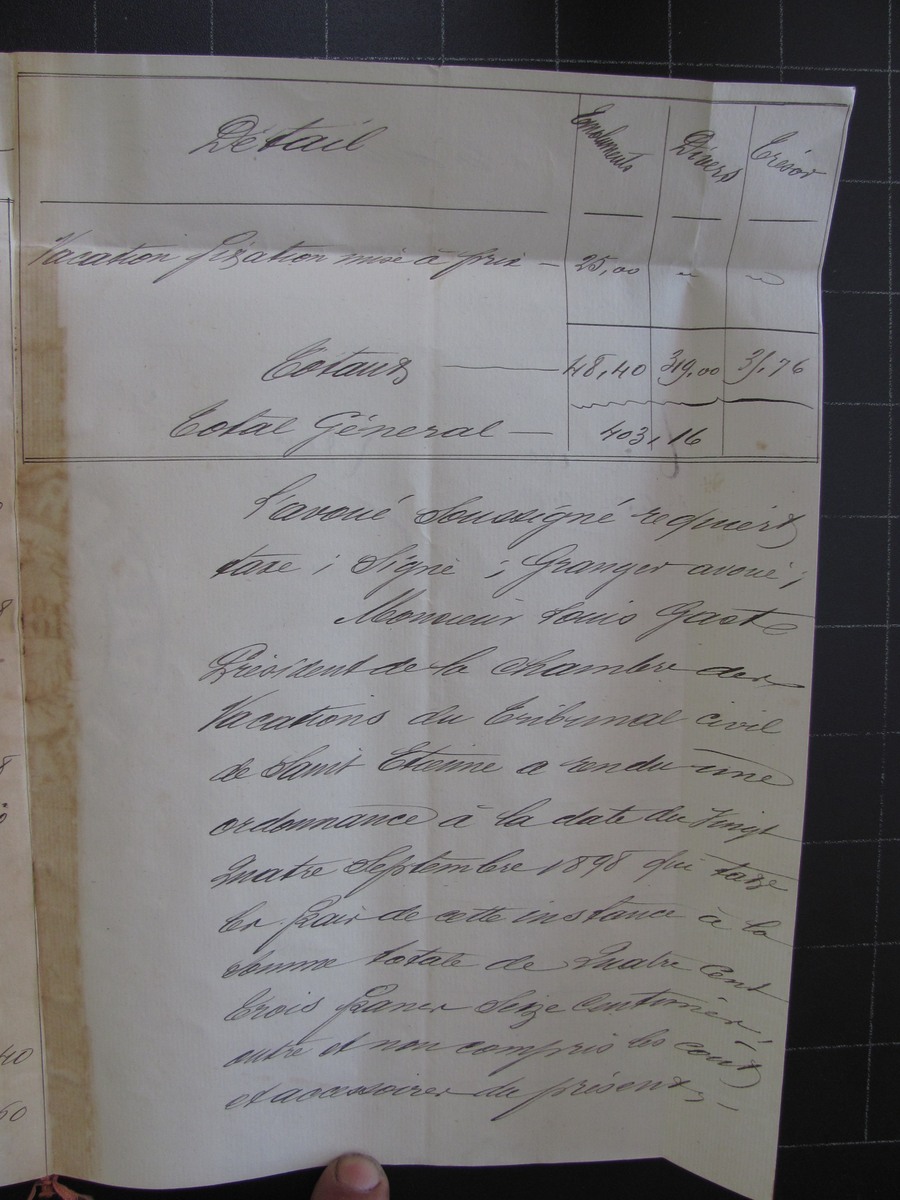 Détail Emoluments Divers Trésor
Vacation fixation mise à prix — 25,00 " "
Totaux 48,40 319,00 35,76
Total Général — 403,16
L'avoué soussigné requiert
taxe ; Signé ; Granger avoué ;
Monsieur Louis Gaste
Président de la chambre des
Vacations du Tribunal civil
de Saint Etienne a rendu une
ordonnance à la date du Vingt
Quatre Septembre 1898 qui taxe
les frais de cette instance à la
somme totale de Quatre Cent
Trois francs Seize Centimes
outre et non compris les coût
et accessoires du présent, —
8
8
40
60